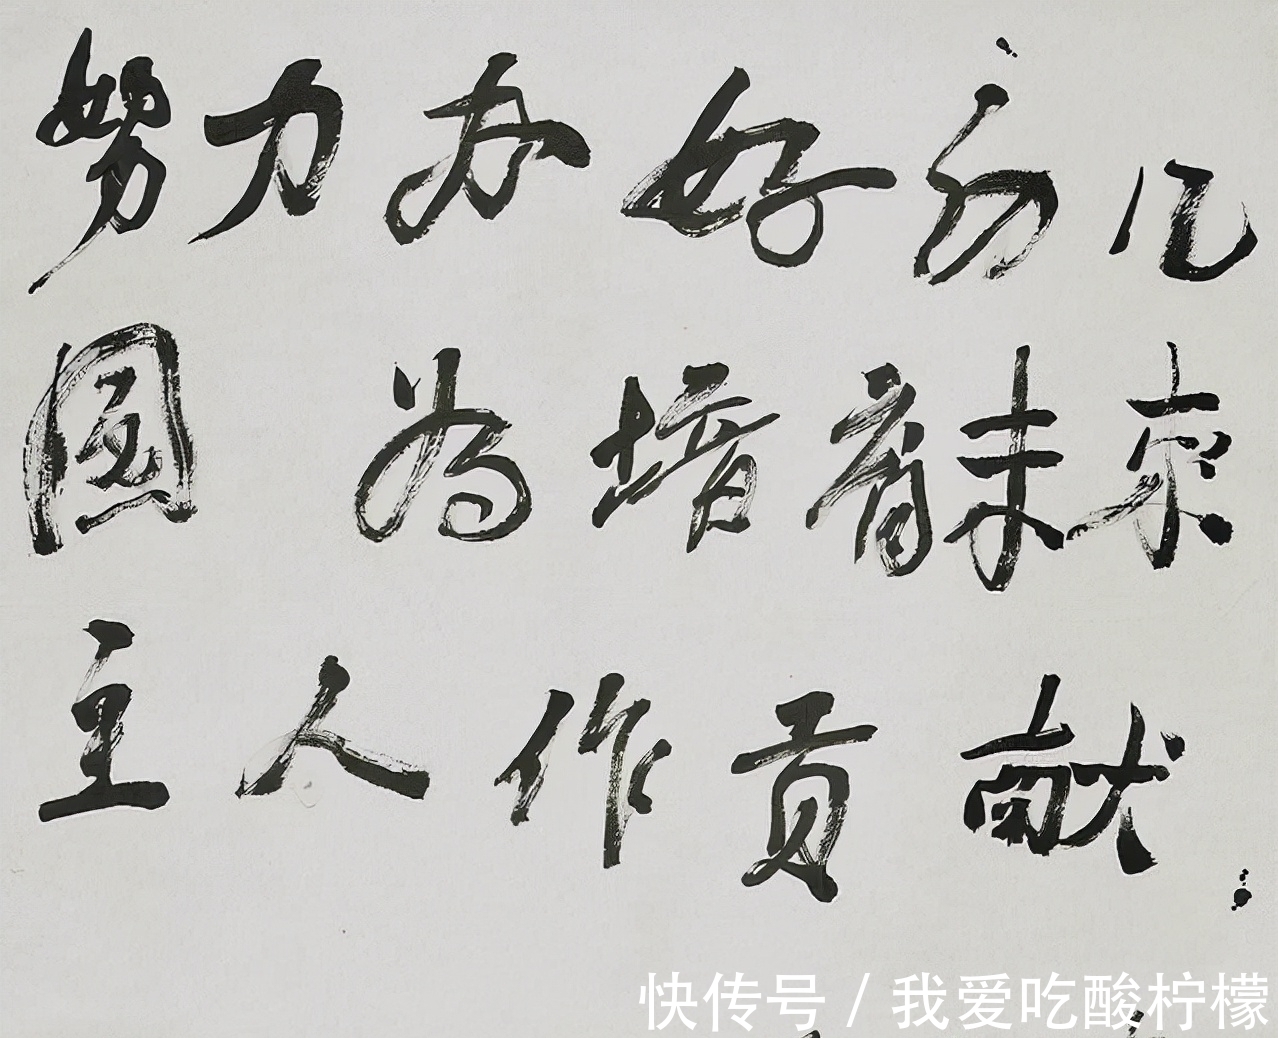 努力办好幼儿
园 为培育未来
主人作贡献
快传号/我爱吃酸柠檬